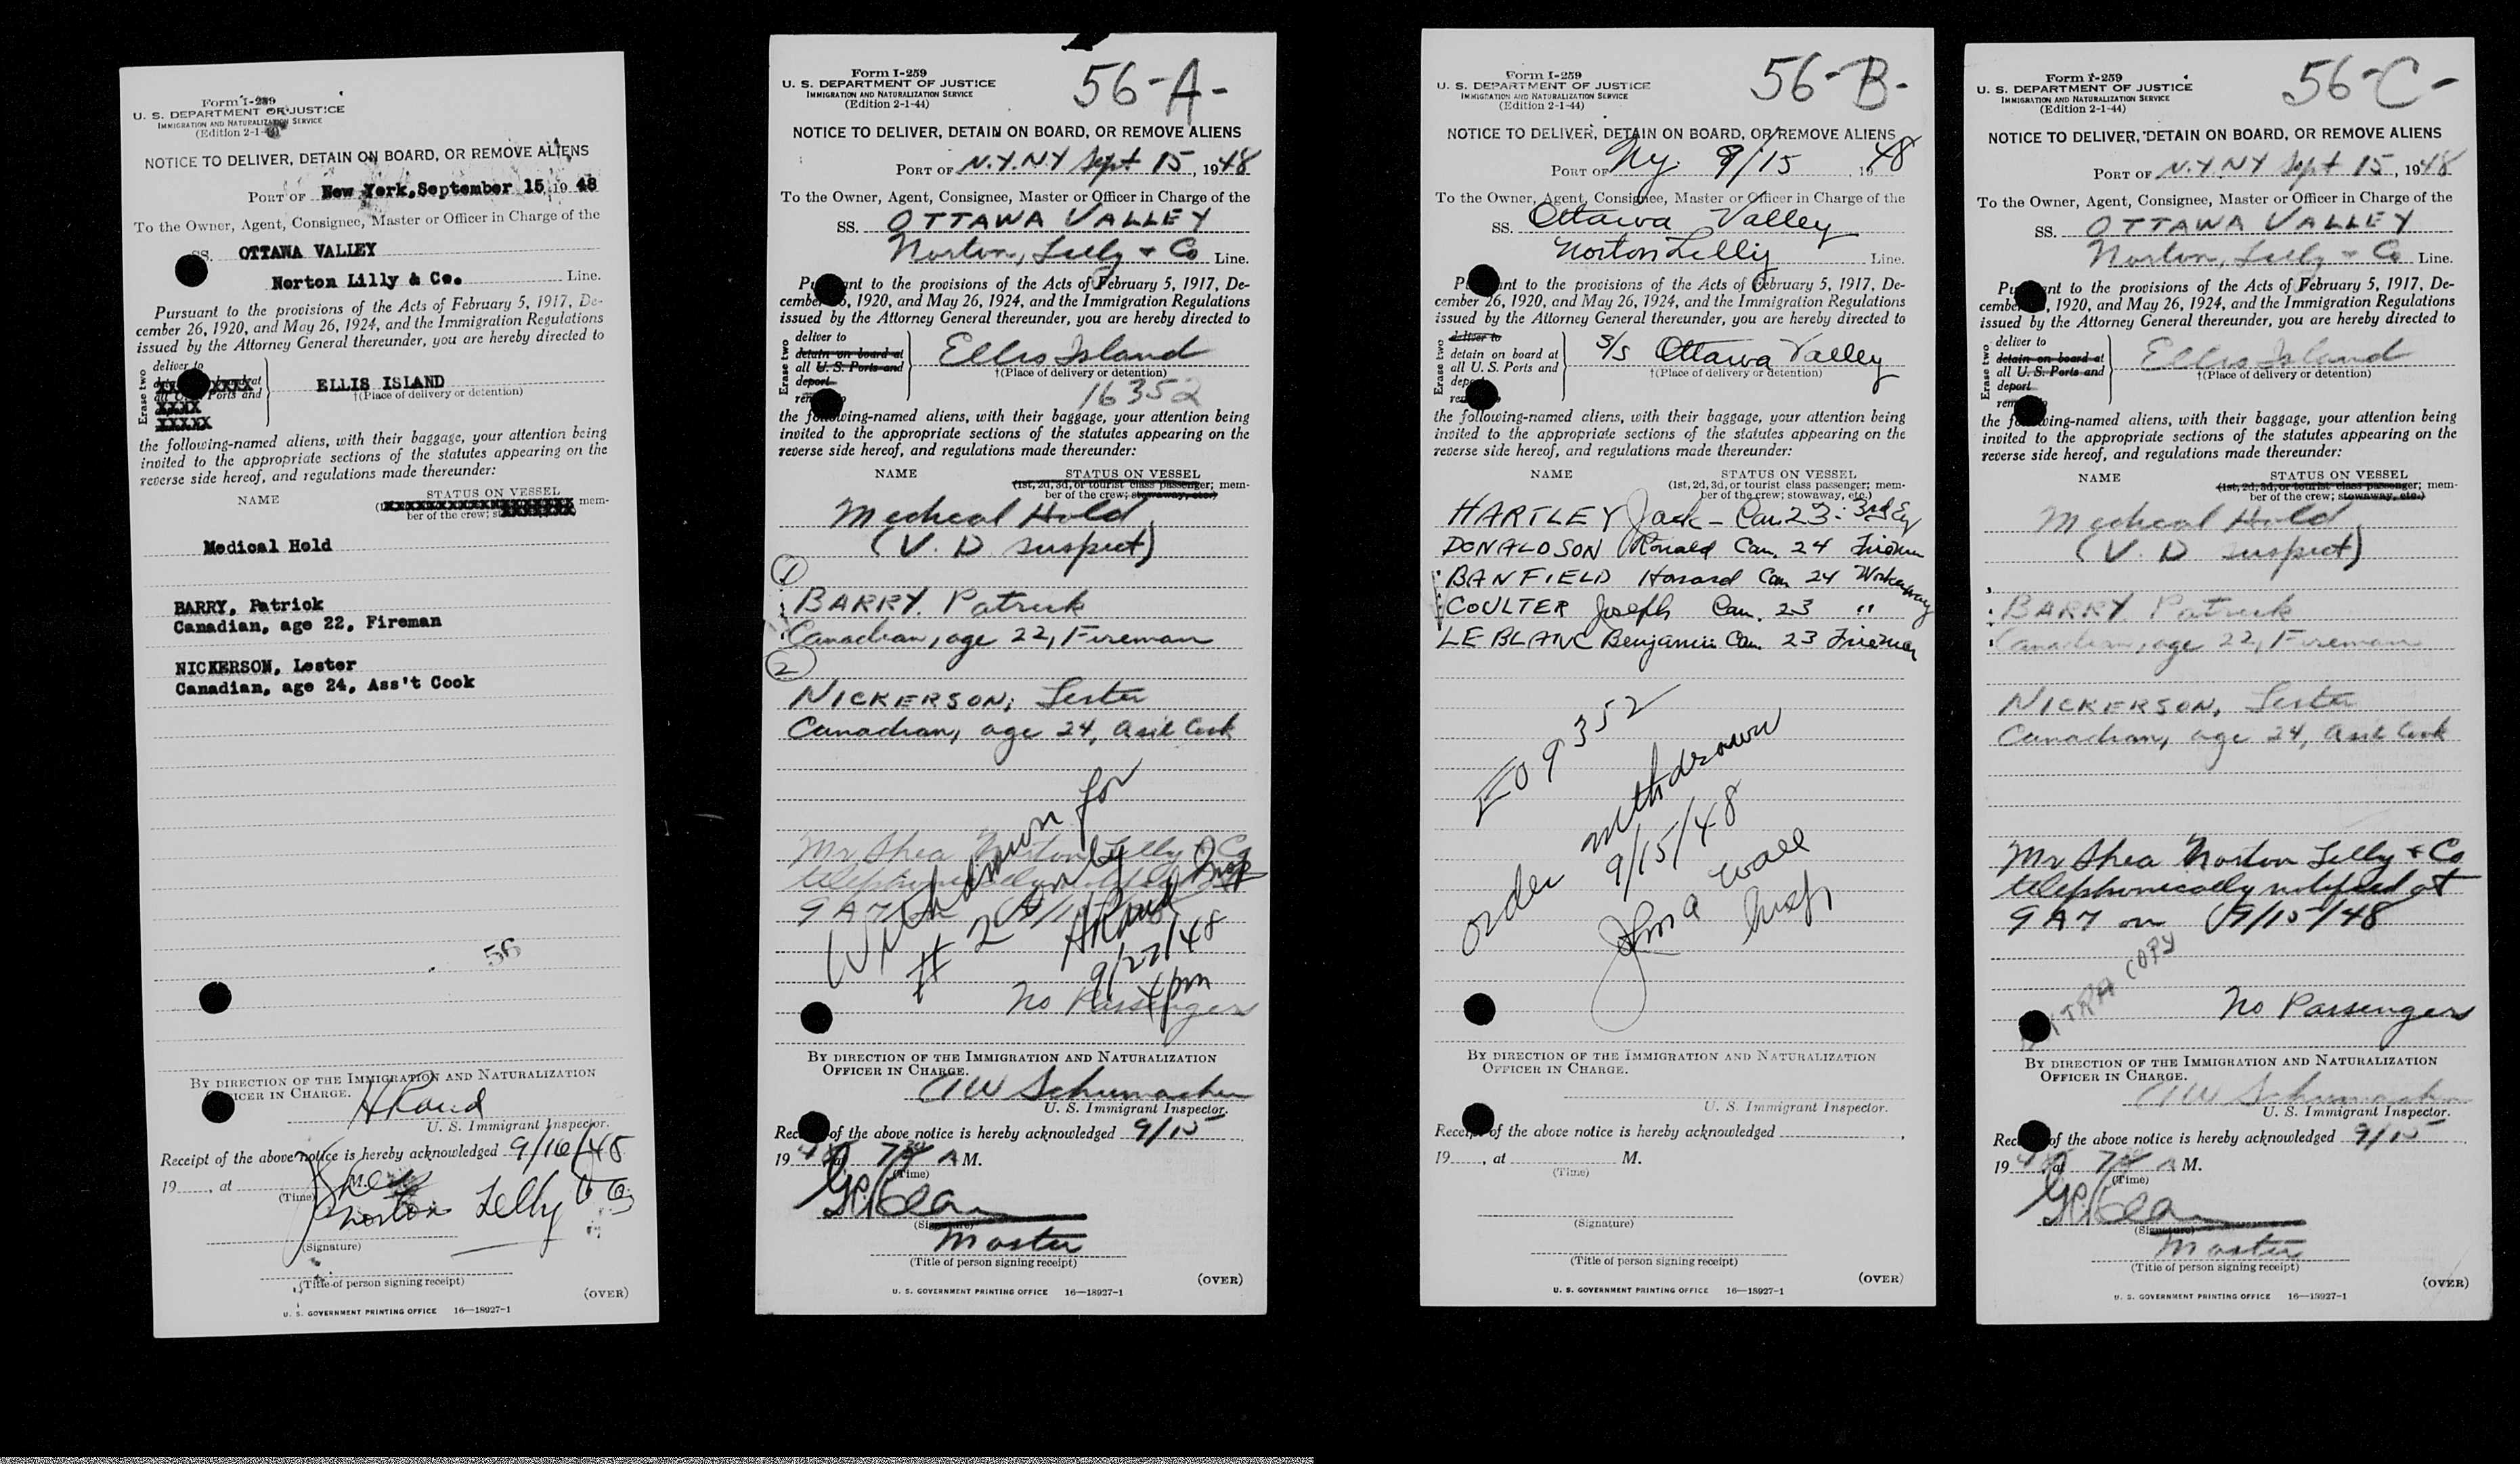 Form I-259
U. S. DEPARTMENT OF JUSTICE
IMMIGRATION AND NATURALIZATION SERVICE
(Edition 2-1-44)
NOTICE TO DELIVER, DETAIN ON BOARD, OR REMOVE ALIENS
PORT OF New York, September 15, 19 48
To the Owner, Agent, Consignee, Master or Officer in Charge of the
SS. OTTAWA VALLEY
Norton Lilly & Co. Line.
Pursuant to the provisions of the Acts of February 5, 1917, De-
cember 26, 1920, and May 26, 1924, and the Immigration Regulations
issued by the Attorney General thereunder, you are hereby directed to
Erase two
deliver to
ELLIS ISLAND
all U.S. Ports and
†(Place of delivery or detention)
the following-named aliens, with their baggage, your attention being
invited to the appropriate sections of the statutes appearing on the
reverse side hereof, and regulations made thereunder:
NAME STATUS ON VESSEL
mem-
ber of the crew;
Medical Hold
BARRY, Patrick
Canadian, age 22, Fireman
NICKERSON, Lester
Canadian, age 24, Ass't Cook
56
BY DIRECTION OF THE IMMIGRATION AND NATURALIZATION
OFFICER IN CHARGE.
U. S. Immigrant Inspector.
Receipt of the above notice is hereby acknowledged 9/16/48
19 , at M.
(Time)
Norton Lilly & Co
(Signature)
(Title of person signing receipt)
(OVER)
U. S. GOVERNMENT PRINTING OFFICE 16—18927-1
56-A-
Form I-259
U. S. DEPARTMENT OF JUSTICE
IMMIGRATION AND NATURALIZATION SERVICE
(Edition 2-1-44)
NOTICE TO DELIVER, DETAIN ON BOARD, OR REMOVE ALIENS
PORT OF N.Y. NY Sept 15, 1948
To the Owner, Agent, Consignee, Master or Officer in Charge of the
SS. OTTAWA VALLEY
Norton, Lilly & Co Line.
Pursuant to the provisions of the Acts of February 5, 1917, De-
cember 26, 1920, and May 26, 1924, and the Immigration Regulations
issued by the Attorney General thereunder, you are hereby directed to
Erase two
deliver to
detain on board at
all U. S. Ports and
deport
remove
Ellis Island
†(Place of delivery or detention)
16352
the following-named aliens, with their baggage, your attention being
invited to the appropriate sections of the statutes appearing on the
reverse side hereof, and regulations made thereunder:
NAME STATUS ON VESSEL
(1st, 2d, 3d, or tourist class passenger; mem-
ber of the crew; stowaway, etc.)
Medical Hold
(V. D suspect)
1
BARRY. Patrick
Canadian, age 22, Fireman
2
NICKERSON, Lester
Canadian, age 24, Asst Cook
Mr Shea Norton Lilly & Co
telephonically notified at
9 AM on 9/15/48
Withdrawn for
# 2 only
9/27/48
4 pm
No Passengers
BY DIRECTION OF THE IMMIGRATION AND NATURALIZATION
OFFICER IN CHARGE.
A W Schumacher
U. S. Immigrant Inspector.
Receipt of the above notice is hereby acknowledged 9/15
1948, at 7 30 A M.
(Time)
(Signature)
Master
(Title of person signing receipt)
(OVER)
U. S. GOVERNMENT PRINTING OFFICE 16—18927-1
56-B-
Form I-259
U. S. DEPARTMENT OF JUSTICE
IMMIGRATION AND NATURALIZATION SERVICE
(Edition 2-1-44)
NOTICE TO DELIVER, DETAIN ON BOARD, OR REMOVE ALIENS
PORT OF Ny. 9/15, 1948
To the Owner, Agent, Consignee, Master or Officer in Charge of the
SS. Ottawa Valley
Norton Lilly Line.
Pursuant to the provisions of the Acts of February 5, 1917, De-
cember 26, 1920, and May 26, 1924, and the Immigration Regulations
issued by the Attorney General thereunder, you are hereby directed to
Erase two
deliver to
detain on board at
all U. S. Ports and
deport
remove
S/S Ottawa Valley
†(Place of delivery or detention)
the following-named aliens, with their baggage, your attention being
invited to the appropriate sections of the statutes appearing on the
reverse side hereof, and regulations made thereunder:
NAME STATUS ON VESSEL
(1st, 2d, 3d, or tourist class passenger; mem-
ber of the crew; stowaway, etc.)
HARTLEY Jack - Can 23 - 3rd Eng
DONALDSON Ronald Can. 24 Fireman
BANFIELD Howard Can 24 Workaway
COULTER Joseph Can. 23 "
LE BLANC Benjamin Can. 23 Fireman
EO 9352
order withdrawn
9/15/48
John A Wall
Insp
BY DIRECTION OF THE IMMIGRATION AND NATURALIZATION
OFFICER IN CHARGE.
U. S. Immigrant Inspector.
Receipt of the above notice is hereby acknowledged
19 , at M.
(Time)
(Signature)
(Title of person signing receipt)
(OVER)
U. S. GOVERNMENT PRINTING OFFICE 16—18927-1
56-C-
Form I-259
U. S. DEPARTMENT OF JUSTICE
IMMIGRATION AND NATURALIZATION SERVICE
(Edition 2-1-44)
NOTICE TO DELIVER, DETAIN ON BOARD, OR REMOVE ALIENS
PORT OF N.Y. NY Sept 15, 1948
To the Owner, Agent, Consignee, Master or Officer in Charge of the
SS. OTTAWA VALLEY
Norton, Lilly & Co Line.
Pursuant to the provisions of the Acts of February 5, 1917, De-
cember 26, 1920, and May 26, 1924, and the Immigration Regulations
issued by the Attorney General thereunder, you are hereby directed to
Erase two
deliver to
detain on board at
all U. S. Ports and
deport
remove
Ellis Island
†(Place of delivery or detention)
the following-named aliens, with their baggage, your attention being
invited to the appropriate sections of the statutes appearing on the
reverse side hereof, and regulations made thereunder:
NAME STATUS ON VESSEL
(1st, 2d, 3d, or tourist class passenger; mem-
ber of the crew; stowaway, etc.)
Medical Hold
(V. D suspect)
BARRY. Patrick
Canadian, age 22, Fireman
NICKERSON, Lester
Canadian, age 24, Asst Cook
Mr Shea Norton Lilly & Co
telephonically notified at
9 AM on 9/15/48
EXTRA COPY
No Passengers
BY DIRECTION OF THE IMMIGRATION AND NATURALIZATION
OFFICER IN CHARGE.
A W Schumacher
U. S. Immigrant Inspector.
Receipt of the above notice is hereby acknowledged 9/15
1948, at 7 30 A M.
(Time)
(Signature)
Master
(Title of person signing receipt)
(OVER)
U. S. GOVERNMENT PRINTING OFFICE 16—18927-1